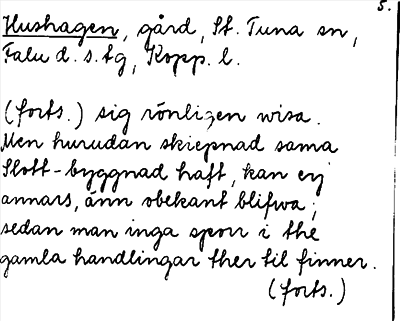 5.
Hushagen, gård, St. Tuna sn,
Falu d. s. tg, Kopp. l.
(forts.) sig rönligen wisa.
Men hurudan skiepnad sama
Slott-byggnad haft, kan ej
annars, änn obekant blifwa;
sedan man inga spor i the
gamla handlingar ther til finner.
(forts.)